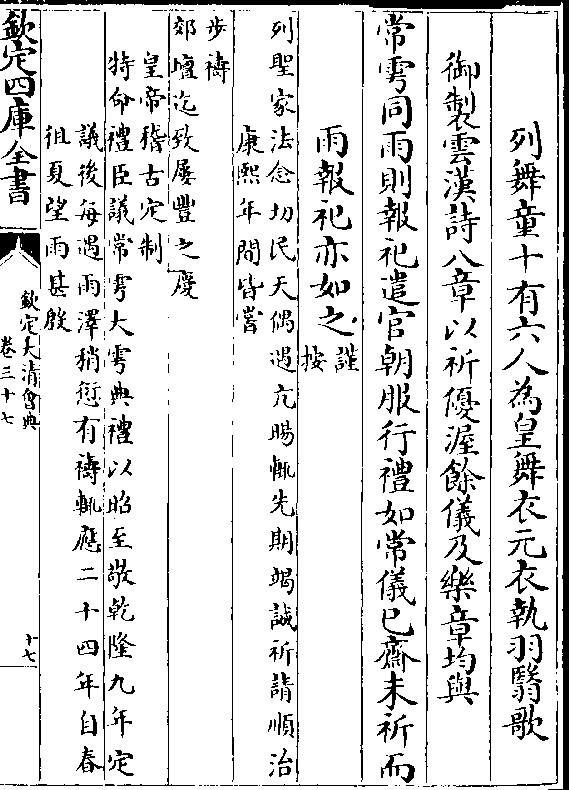 列舞童十有六人為皇舞衣元衣執羽翳歌
御製雲漢詩八章以祈優渥餘儀及樂章均與
常雩同雨則報祀遣官朝服行禮如常儀已齋未祈而
雨報祀亦如之謹
按
列聖家法念切民天偶遇亢暘輒先期竭誠祈請順治
康熙年間皆嘗
步禱
郊壇迄致屢豐之慶
皇帝稽古定制
特命禮臣議常雩大雩典禮以昭至敬乾隆九年定
議後每遇雨澤稍愆有禱輒應二十四年自春
徂夏望雨甚殷
欽定四庫全書
欽定大清會典
卷三十七
十七